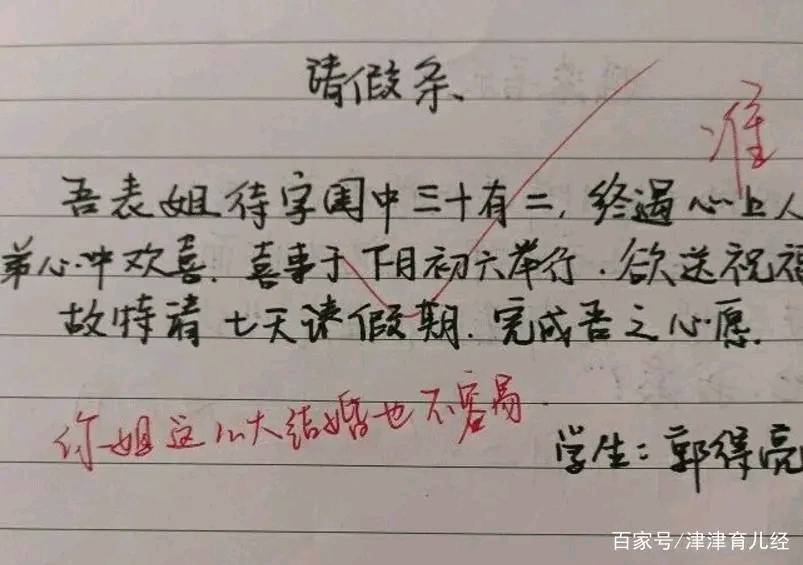 请假条
准
吾表姐待字闺中三十有二,终遇心上人
弟心中欢喜.喜事于下月初六举行.欲送祝福
故特请七天课假期.完成吾之心愿.
你姐这么大结婚也不容易
学生:郭得亮
百家号/津津育儿经